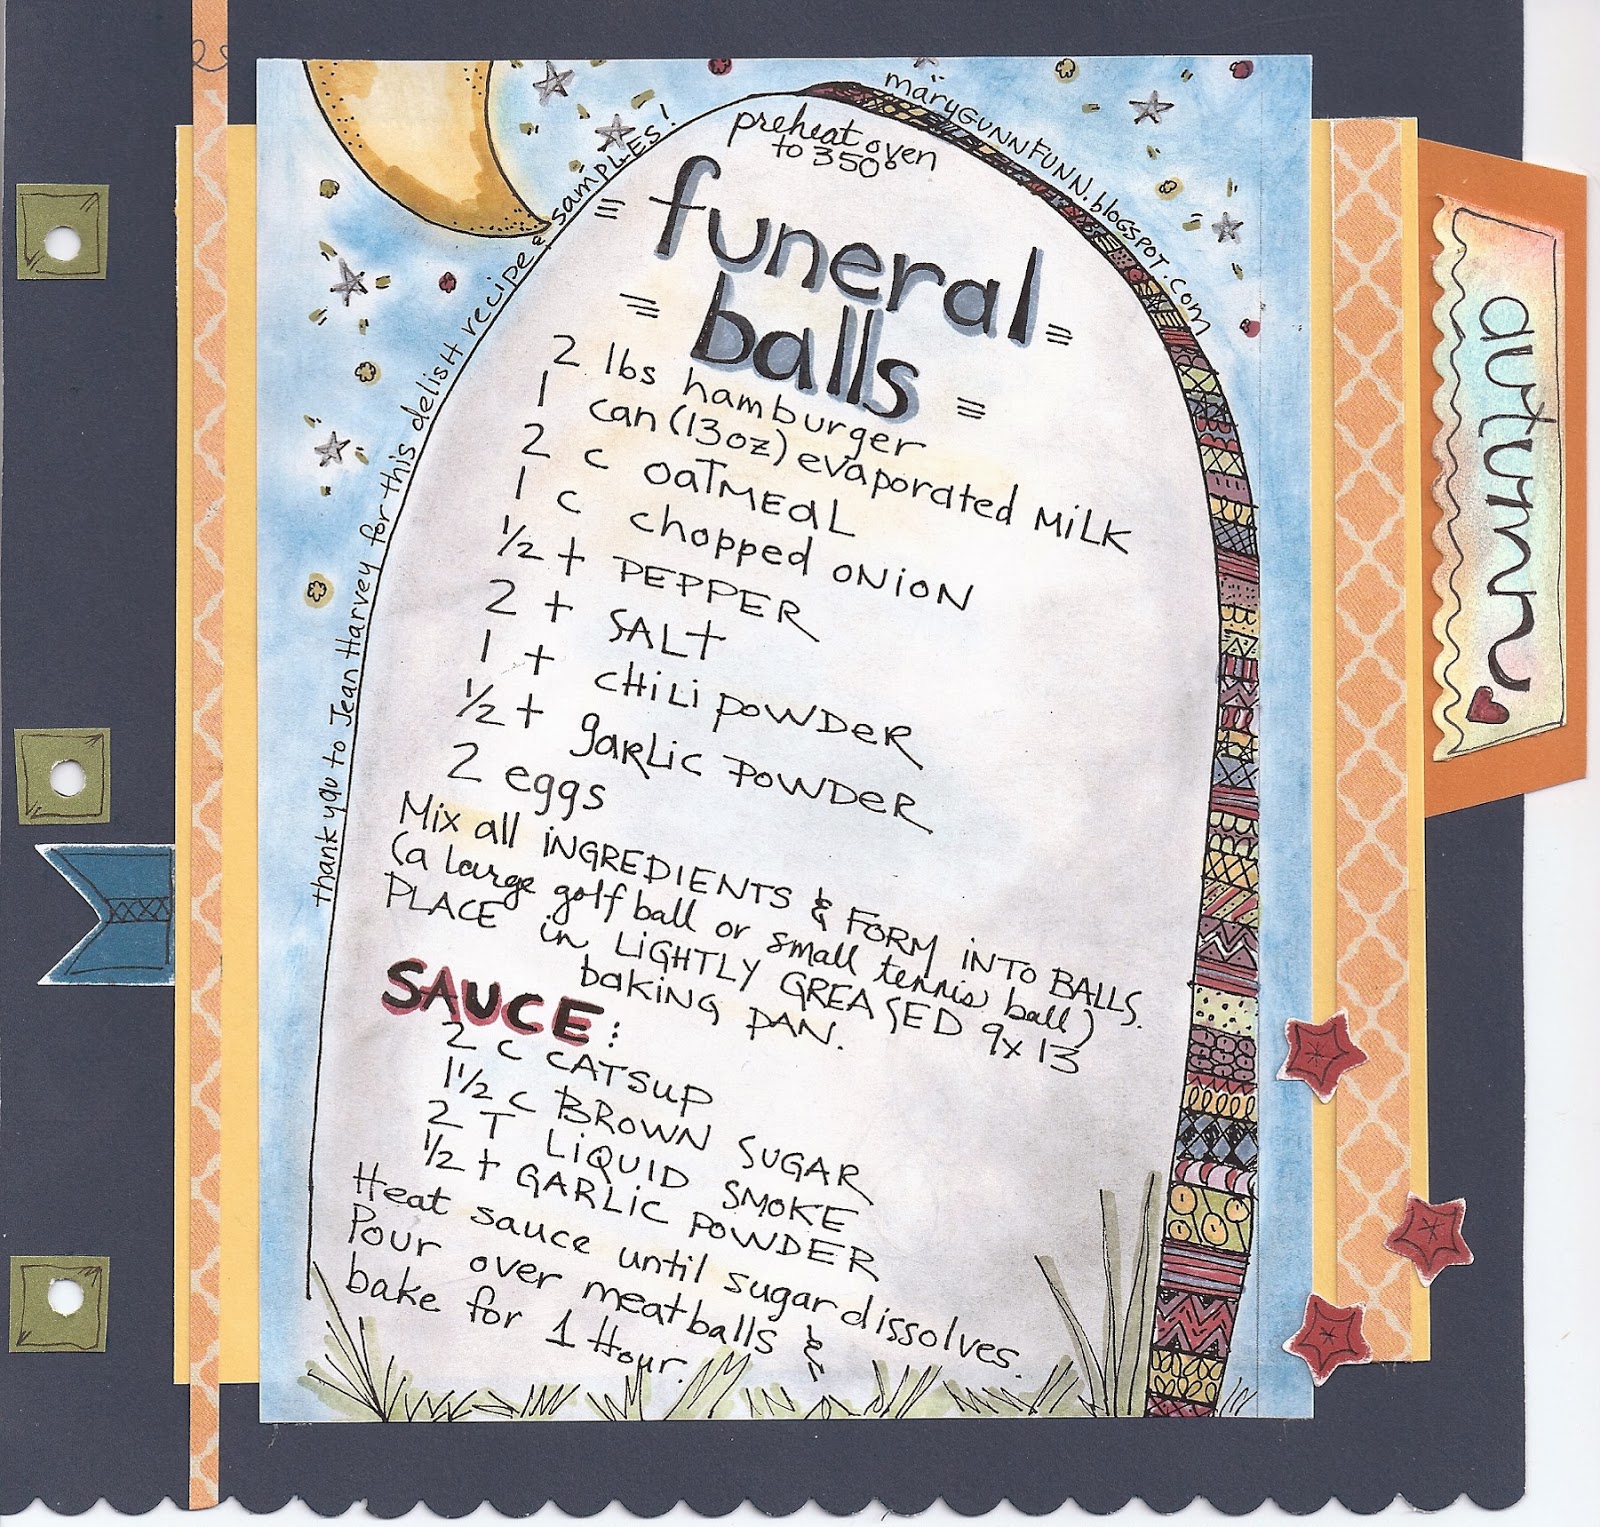 preheat oven
to 350°
funeral
balls
2 lbs hamburger
1 can (13oz) evaporated MiLK
2 c OATMEAL
1 c chopped ONiON
1/2 t PEPPER
2 t SALt
1 t CHiLi POWDER
1/2 t gARLic POWDER
2 eggs
Mix all INGREDIENTS & FORM iNTO BALLS
(a large golf ball or small tennis ball)
PLACE in LiGHTLY GREASED 9x13
baking PAN.
SAUCE:
2 c CATSUP
1 1/2 c BROWN SUGAR
2 T LiQUID SMOKE
1/2 t GARLiC POWDER
Heat sauce until sugar dissolves.
Pour over meatballs &
bake for 1 Hour.
thank you to Jean Harvey for this delish recipe & samples!
märyGUNNFUNN.blogspot.com
autumn